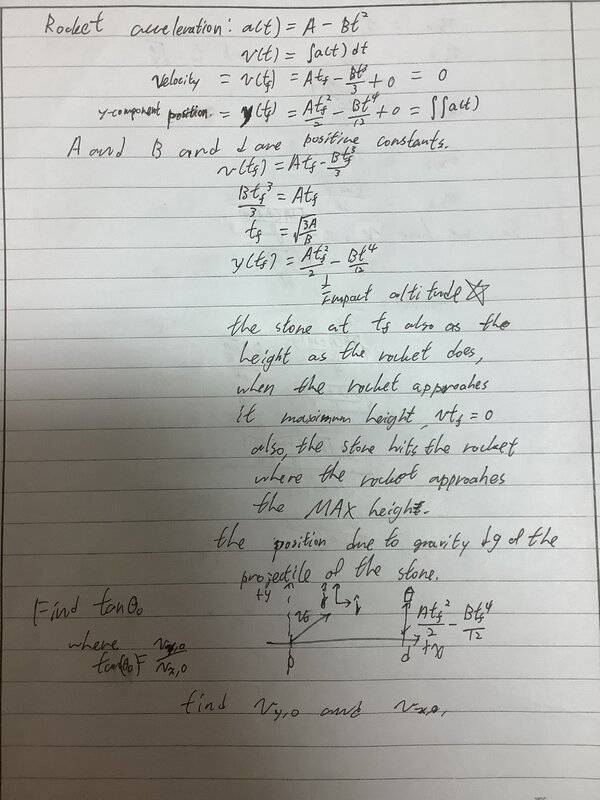 Rocket acceleration: a(t) = A - Bt²
v(t) = ∫a(t) dt
Velocity = v(tf) = Atf - Bt³/3 + 0 = 0
y-component position = y(tf) = Atf²/2 - Bt⁴/12 + 0 = ∫∫a(t)
A and B and d are positive constants.
v(tf) = Atf - Btf³/3
Btf³/3 = Atf
tf = √(3A/B)
y(tf) = Atf²/2 - Bt⁴/12
Impact altitude ☆
the stone at tf also as the
height as the rocket does,
when the rocket approahes
it maximum height, vtf = 0
also, the stone hits the rocket
where the rocket approahes
the MAX height.
the position due to gravity ↓g of the
projectile of the stone.
+y ĵ î
Find tanθ₀
v₀ Atf²/2 - Btf⁴/12
where tan(θ₀) = vy,0/vx,0
0 d +x
find vy,0 and vx,0,